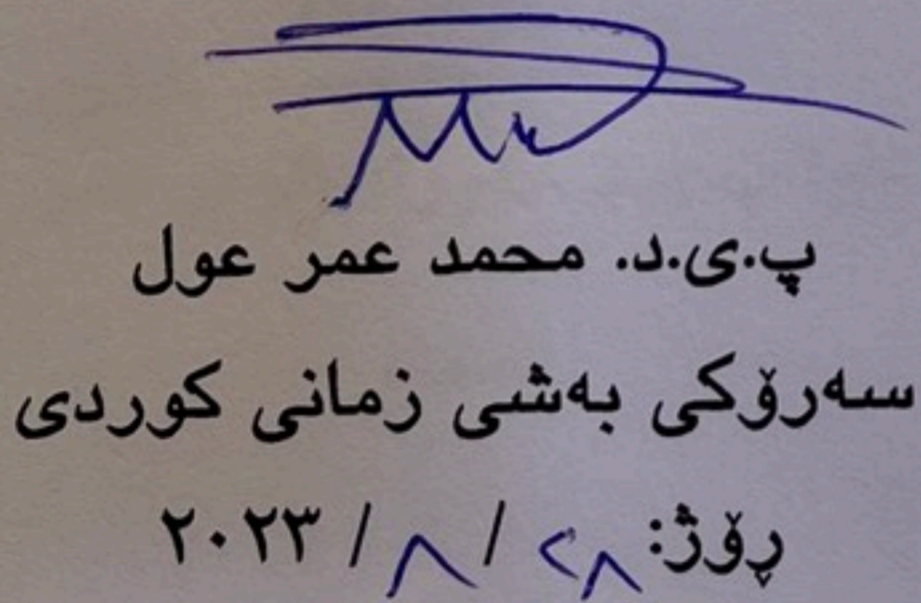 پ.ی.د. محمد عمر عول
سەرۆکی بەشی زمانی کوردی
ڕۆژ: ٢٨ / ٨ / ٢٠٢٣